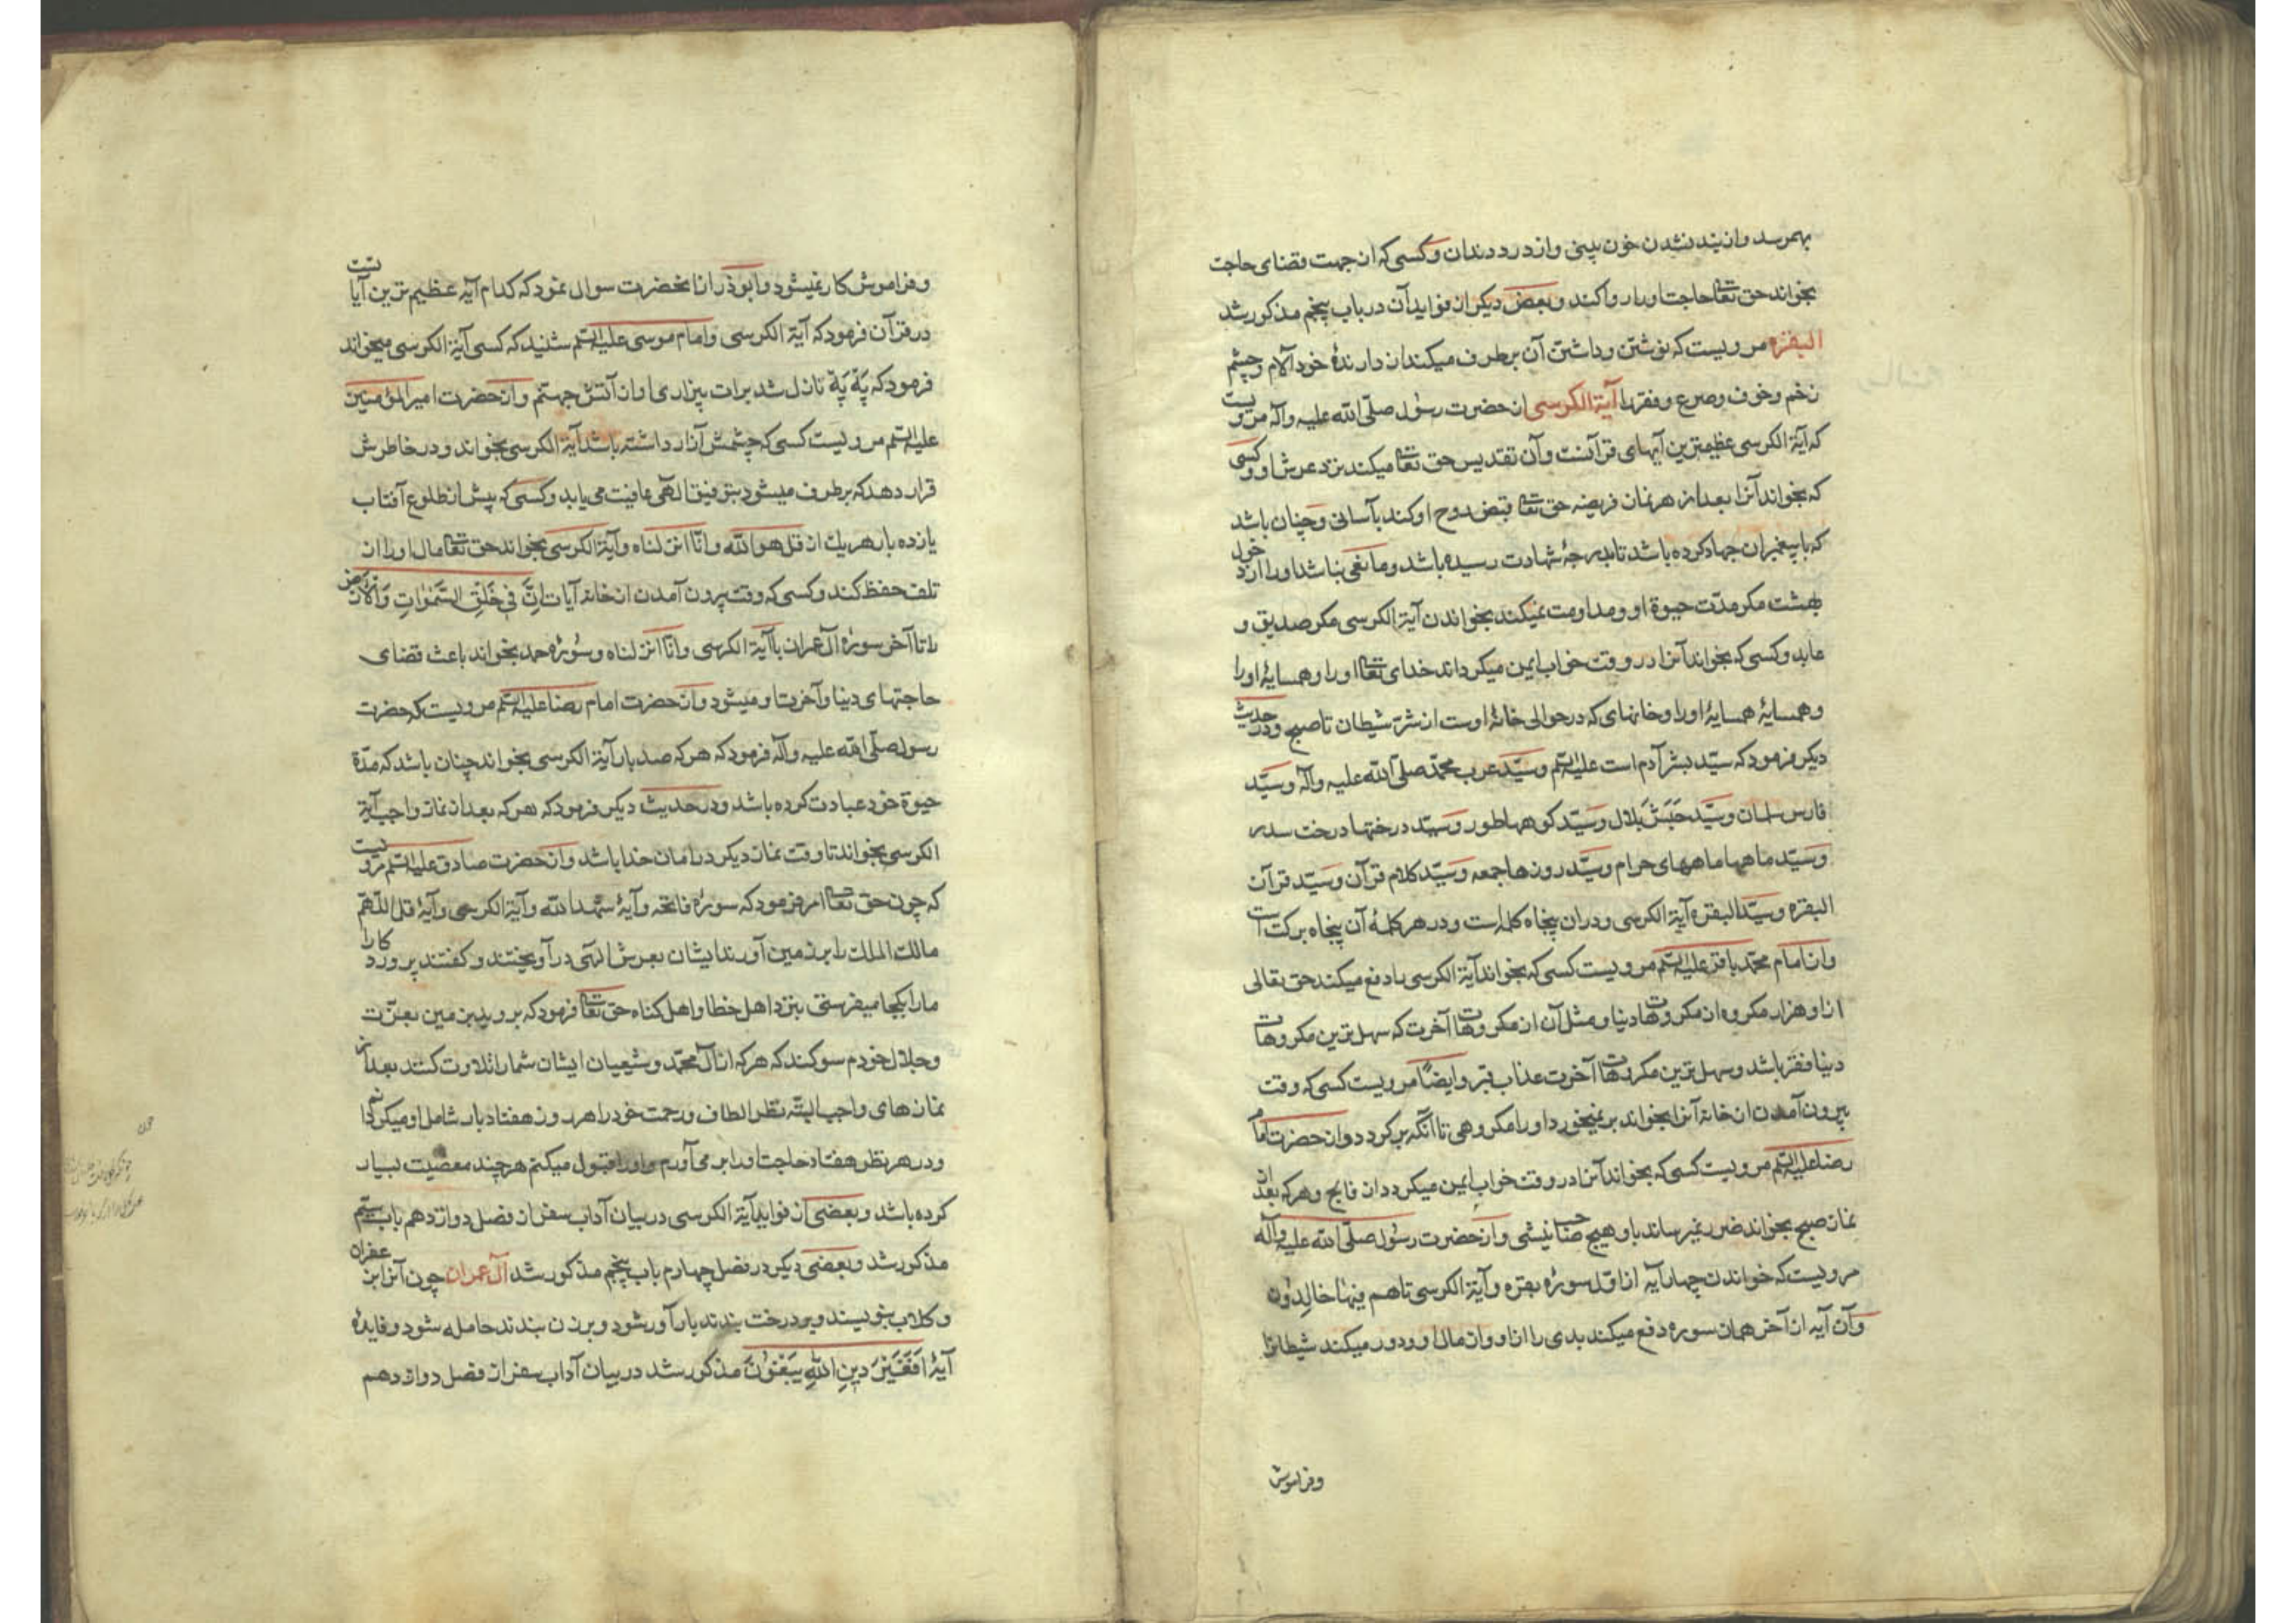 بهمرسد و از بند نشدن خون بینی و از درد دندان و کسی که از جهت قضای حاجت
بخواند حق تعالی حاجت او را روا کند و بعضی دیگر از فواید آن در باب پنجم مذکور شد
البقره مرویست که نوشتن و داشتن آن برطرف میکند از دارندهٔ خود آلام و چشم
زخم و خوف و صرع و فقر را آیة الکرسی از حضرت رسول صلّی الله علیه وآله مرویست
که آیة الکرسی عظیمترین آیهای قرآنست و آن تقدیس حق تعالی میکند نزد عرش او و کسی
که بخواند آنرا بعد از هر نماز فریضه حق تعالی قبض روح او کند بآسانی و چنان باشد
که با پیغمبران جهاد کرده باشد تا بدرجهٔ شهادت رسیده باشد و مانعی نباشد او را از دخول
بهشت مکر مدّت حیوة او و مداومت نمیکند بخواندن آیة الکرسی مکر صدیق و
عابد و کسی که بخواند آنرا در وقت خواب ایمن میکرداند خدای تعالی او را و همسایهٔ او را
و همسایهٔ همسایهٔ او را و خانهای که در حوالی خانهٔ اوست از شرّ شیطان تا صبح و در حدیث
دیکر فرمود که سیّد بشر آدم است علیه السّلم و سیّد عرب محمّد صلّی الله علیه وآله و سیّد
فارس سلمان و سیّد حَبَش بلال و سیّد کوهها طور و سیّد درختها درخت سدر
و سیّد ماهها ماههای حرام و سیّد روزها جمعه و سیّد کلام قرآن و سیّد قرآن
البقره و سیّد البقره آیة الکرسی و دران پنجاه کلمه است و در هر کلمهٔ آن پنجاه برکت است
و از امام محمّد باقر علیه السّلم مرویست کسی که بخواند آیة الکرسی یاد دفع میکند حق تعالی
از او هزار مکروه از مکروهات دنیا و مثل آن از مکروهات آخرت که سهل ترین مکروهات
دنیا فقر باشد و سهل ترین مکروهات آخرت عذاب قبر و ایضًا مرویست کسی که وقت
بیرون آمدن از خانه آنرا بخواند برنمیخورد او را مکروهی تا آنکه برکردد و از حضرت امام
رضا علیه السّلم مرویست کسی که بخواند آنرا در وقت خواب ایمن میکردد از فالج و هر که بعد از
نماز صبح بخواند ضرر نمیرساند باو هیچ صاحب نیشی و از حضرت رسول صلّی الله علیه وآله
مرویست که خواندن چهار آیه از اوّل سورهٔ بقره و آیة الکرسی تا هم فیها خالدون
و آن آیه از آخر همان سوره دفع میکند بدی را از او و از مال او و دور میکند شیطانرا
و فراموش
و فراموش کار نمیشود و ابوذر از انحضرت سوال نمود که کدام آیه عظیم ترین آیاتست
در قرآن فرمود که آیة الکرسی و امام موسی علیه السّلم شنید که کسی آیة الکرسی میخواند
فرمود که نازل شد برات بیزاری او از آتش جهنّم و از حضرت امیر المؤمنین
علیه السّلم مرویست کسی که چشمش آزار داشته باشد آیة الکرسی بخواند و در خاطرش
قرار دهد که برطرف میشود بتوفیق الهی عافیت می یابد و کسی که پیش از طلوع آفتاب
یازده بار هر یک از قل هو الله و انّا انزلناه و آیة الکرسی بخواند حق تعالی مال او را از
تلف حفظ کند و کسی که وقت بیرون آمدن از خانه آیات اِنَّ فی خَلقِ السَّمواتِ وَالاَرض
را تا آخر سورهٔ آل عمران با آیة الکرسی و انّا انزلناه و سورهٔ حمد بخواند باعث قضای
حاجتهای دنیا و آخرت او میشود و از حضرت امام رضا علیه السّلم مرویست که حضرت
رسول صلّی الله علیه وآله فرمود که هر که صد بار آیة الکرسی بخواند چنان باشد که مدّة
حیوة خود عبادت کرده باشد و در حدیث دیکر فرمود که هر که بعد از نماز واجب آیة
الکرسی بخواند تا وقت نماز دیکر در امان خدا باشد و از حضرت صادق علیه السّلم مرویست
که چون حق تعالی امر فرمود که سورهٔ فاتحه و آیهٔ شهد الله و آیة الکرسی و آیهٔ قل اللّهم
مالک الملک را بر زمین آورند ایشان بعرش الهی در آویختند و کفتند پروردکارا
ما را بکجا میفرستی بنزد اهل خطا و اهل کناه حق تعالی فرمود که بروید بزمین بعزّت
و جلال خودم سوکند که هر که از آل محمّد و شیعیان ایشان شما را تلاوت کنند بعد از
نمازهای واجب البتّه نظر الطاف و رحمت خود را هر روز هفتاد بار شامل او میکردانم
و در هر نظر هفتاد حاجت او را بر می آورم و او را قبول میکنم هر چند معصیت بسیار
کرده باشد و بعضی از فواید آیة الکرسی در بیان آداب سفر از فصل دوازدهم باب
مذکور شد و بعضی دیکر در فصل چهارم باب پنجم مذکور شد آل عمران چون آنرا بزعفران
و کلاب بنویسند و بر درخت بندند بار آور شود و بر زن بندند حامله شود و فایدهٔ
آیهٔ اَفَغَیرَ دینِ اللهِ یَبغونَ مذکور شد در بیان آداب سفر از فصل دوازدهم